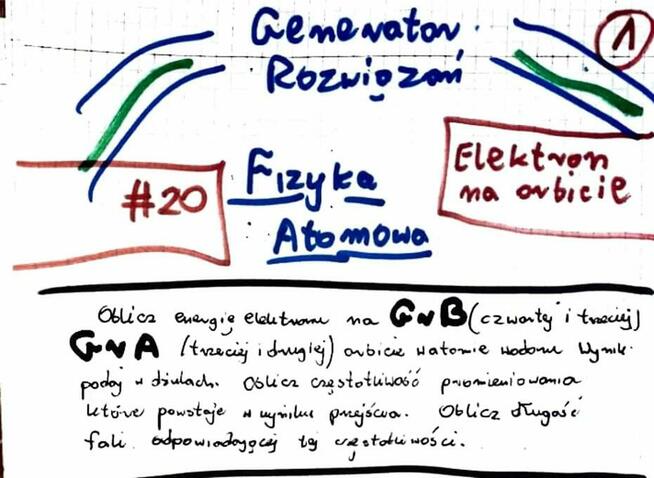 Generator
1
Rozwiązań
#20
Fizyka
Atomowa
Elektron
na orbicie
Oblicz energię elektronu na GrB (czwartej i trzeciej)
GrA (trzeciej i drugiej) orbicie w atomie wodoru Wynik
podaj w dżulach. Oblicz częstotliwość promieniowania
które powstaje w wyniku przejścia. Oblicz długość
fali odpowiadającej tej częstotliwości.